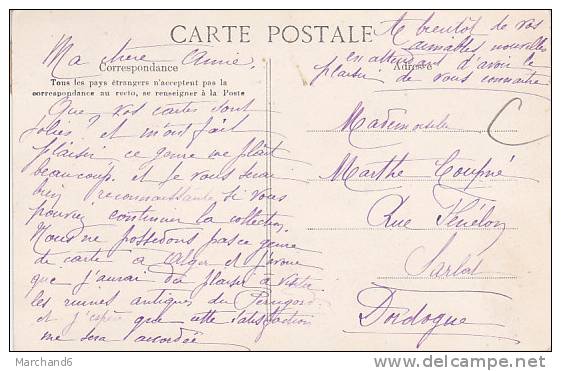 CARTE POSTALE
Correspondance
Adresse
Tous les pays étrangers n'acceptent pas la
correspondance au recto, se renseigner à la Poste
Ma chère Amie,
Que vos cartes sont
jolies! et m'ont fait
plaisir, ce genre me plait
beaucoup. et je vous serai
bien reconnaissante si vous
pouviez continuer la collection.
Nous ne possédons pas ce genre
de carte à Alger et j'avoue
que j'aurai du plaisir à visiter
les ruines antiques du Périgord
et j'espère que cette satisfaction
me sera accordée
A bientôt de vos
aimables nouvelles
en attendant d'avoir le
plaisir de vous connaître
Mademoiselle
Marthe Coupué
Rue Fénélon
Sarlat
Dordogne
Marchand6
www.delcampe.net